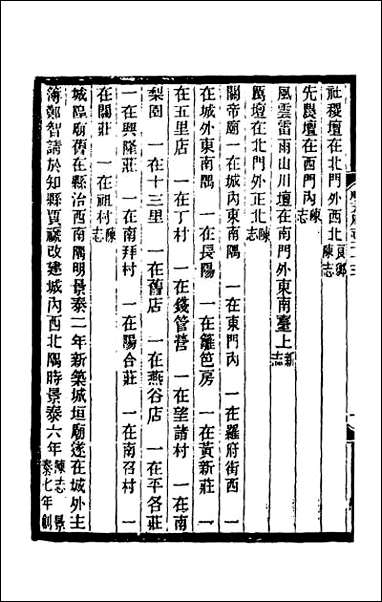 社稷壇在北門外西北良鄉陳志
先農壇在西門內陳志
風雲雷雨山川壇在南門外東南臺上新志
厲壇在北門外正北陳志
關帝廟一在城內東南隅 一在東門內 一在羅府街西 一
在城外東南隅 一在長陽 一在籬笆房 一在黃新莊 一
在五里店 一在丁村 一在錢管營 一在望諸村 一在南
梨園 一在十三里 一在舊店 一在燕谷店 一在平各莊
一在興隆莊 一在南拜村 一在陽合莊 一在南召村 一
在關莊 一在祖村陳志
城隍廟舊在縣治西南隅明景泰二年新築城垣廟遂在城外主
簿鄭智請於知縣賈 改建城內西北隅時景泰六年陳志 景泰七年創